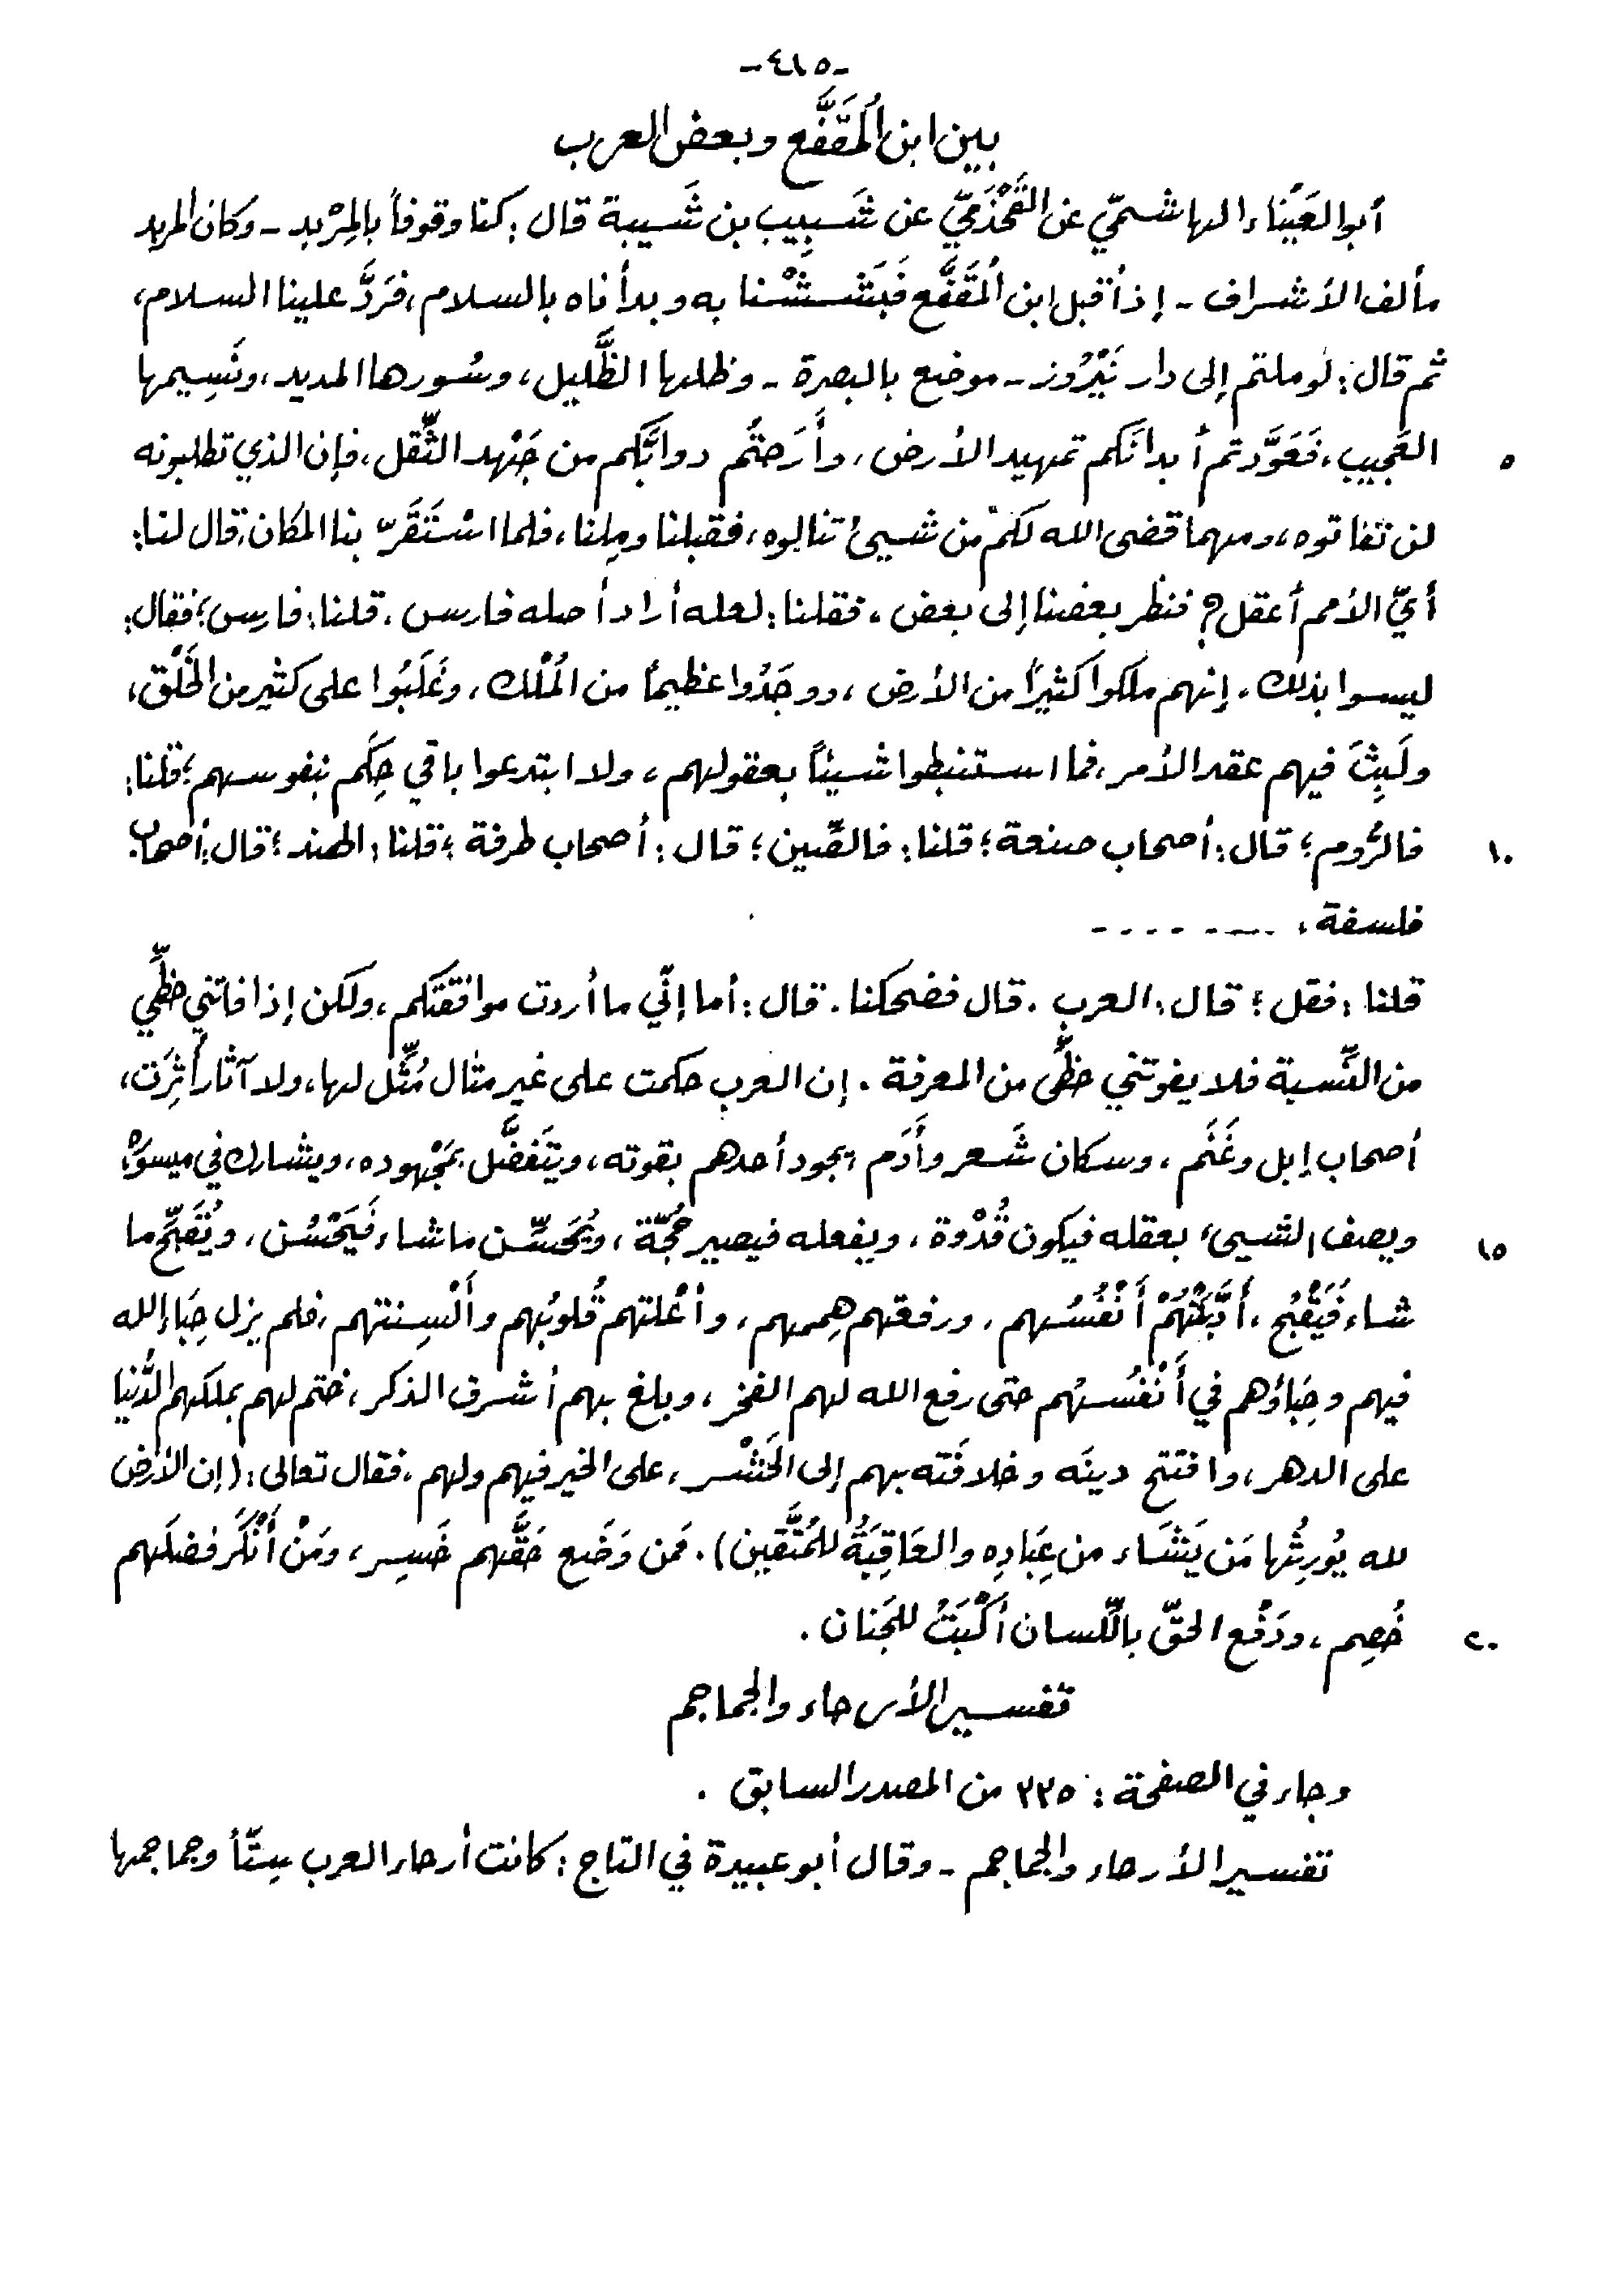 -٤١٥-
بين ابن المُقَفَّع وبعض العرب
أبو العَيْناء الهاشميّ عن القَحْذَميّ عن شَبِيب بن شَيبة قال: كنا وقوفاً بالمِرْبد - وكان المربد
مألف الأشراف - إذ أقبل ابن المُقَفَّع فَبَشَشْنا به وبدأناه بالسلام، فَرَدَّ علينا السلام،
ثم قال: لو ملتم إلى دار نَيْرُوز - موضع بالبصرة - وظلها الظَّليل، وسُورها المديد، ونَسِيمها
العَجيب، فَعَوَّدتم أبدانَكم تمهيد الأرض، وأَرَحتُم دوابَّكم من جَهْد الثِّقل، فإن الذي تطلبونه ٥
لن تفاتوه، ومهما قضى الله لكم من شيئ تنالوه، فقبلنا ومِلنا، فلما اسْتَقَرّ بنا المكان، قال لنا:
أيّ الأمم أعقل؟ فنظر بعضنا إلى بعض، فقلنا: لعله أراد أصله فارس، قلنا: فارس؛ فقال:
ليسوا بذلك، إنهم ملكوا كثيراً من الأرض، ووجَدُوا عظيماً من المُلْك، وغَلَبُوا على كثير من الخَلْق،
ولَبِثَ فيهم عقد الأمر، فما استنبطوا شيئاً بعقولهم، ولا ابتدعوا باقي حِكَم بنفوسهم؛ قلنا:
فالرُّوم؛ قال: أصحاب صنعة؛ قلنا: فالصِّين؛ قال: أصحاب طرفة؛ قلنا: الهند؛ قال: أصحاب ١٠
فلسفة، - - - - - - -
قلنا: فقل؛ قال: العرب. قال فضحكنا. قال: أما إنّي ما أردت موافقتَكم، ولكن إذا فاتني حظِّي
من النِّسبة فلا يفوتني حظِّى من المعرفة. إن العرب حكمت على غير مثال مُثِّل لها، ولا آثار أُثِرَت،
أصحاب إبل وغَنَم، وسكان شَعر وأَدَم، يجود أحدهم بقوته، ويتَفضَّل بمَجْهوده، ويشارك في ميسوره
ويصف الشيئ بعقله فيكون قُدْوة، ويفعله فيصير حُجّة، ويُحَسِّن ما شاء فَيَحْسُن، ويُقَبِّح ما ١٥
شاء فَيَقْبُح، أَدَّبَتْهُمْ أَنْفُسُهم، ورفعتهم هِممهم، وأعْلتهم قُلوبُهم وأَلْسِنتهم، فلم يزل حِبَاء الله
فيهم وحِبَاؤهم في أَنْفُسُهم حتى رفع الله لهم الفخر، وبلغ بهم أشرف الذكر، ختم لهم بملكهم الدُّنيا
على الدهر، وافتتح دينَه وخلافَته بهم إلى الحَشْر، على الخير فيهم ولهم، فقال تعالى: (إن الأرض
لله يُورِثُها مَن يَشَاء من عِبَادِه والعَاقِبَةُ للمُتَّقين). فمن وَضَع حَقَّهم خَسِر، ومَنْ أَنْكَر فضلَهم
خُصِم، ودَفْع الحقّ باللِّسان أكْبَتُ للجَنان. ٢٠
تفسير الأرحاء والجماجم
وجاء في الصفحة: ٣٣٥ من المصدر السابق.
تفسير الأرحاء والجماجم - وقال أبو عبيدة في التاج: كانت أرحاء العرب سِتّاً وجماجمها